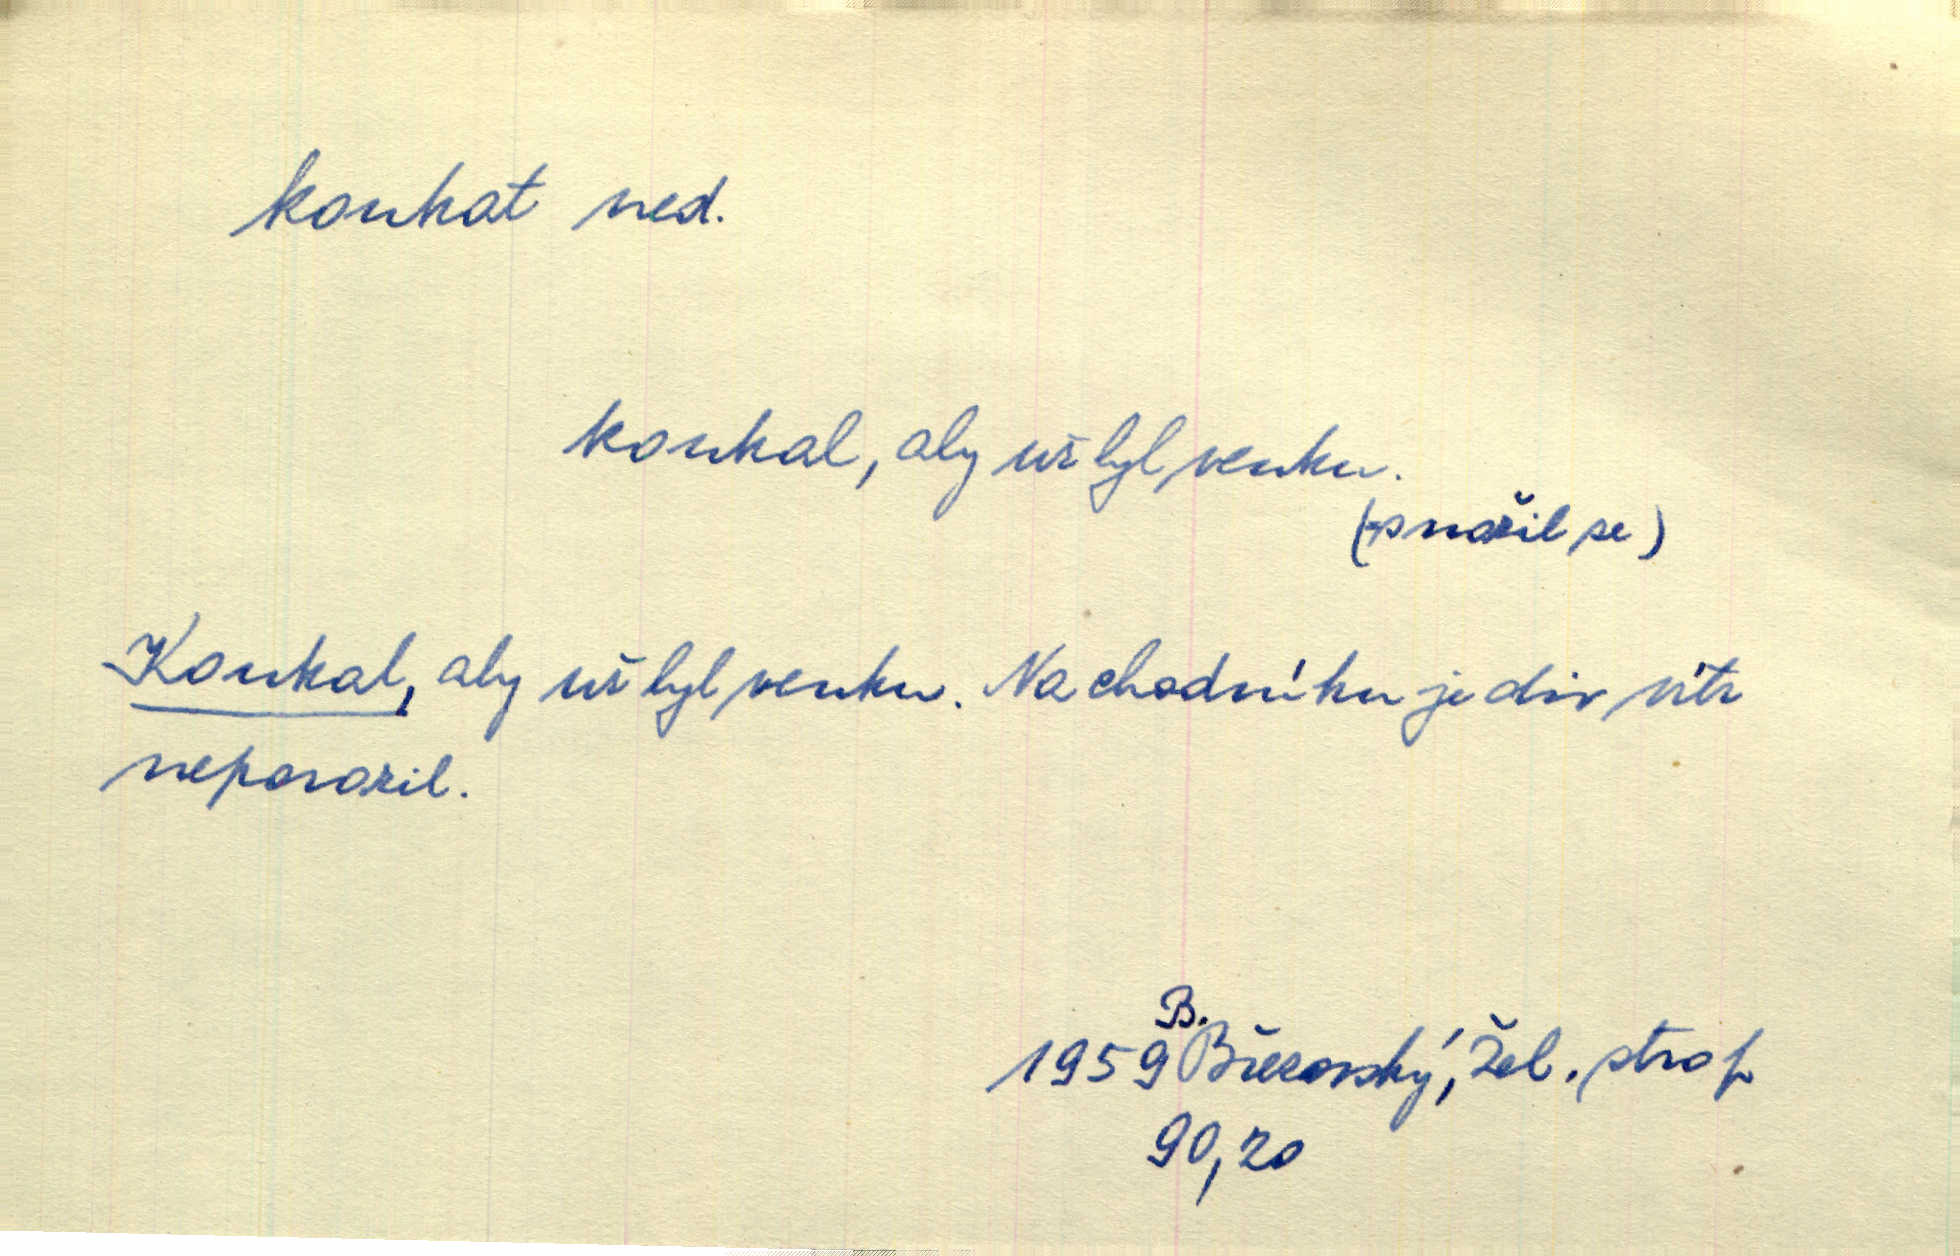 koukat ned.
koukal, aby už byl venku.
(= snažil se)
Koukal, aby už byl venku. Na chodníku je div vítr
neporazil.
B.
1959 Březovský, Žel. strop
90,20